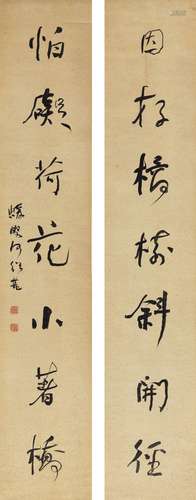 因存橘樹斜開徑
怕礙荷花小著橋
蝯叟何紹基